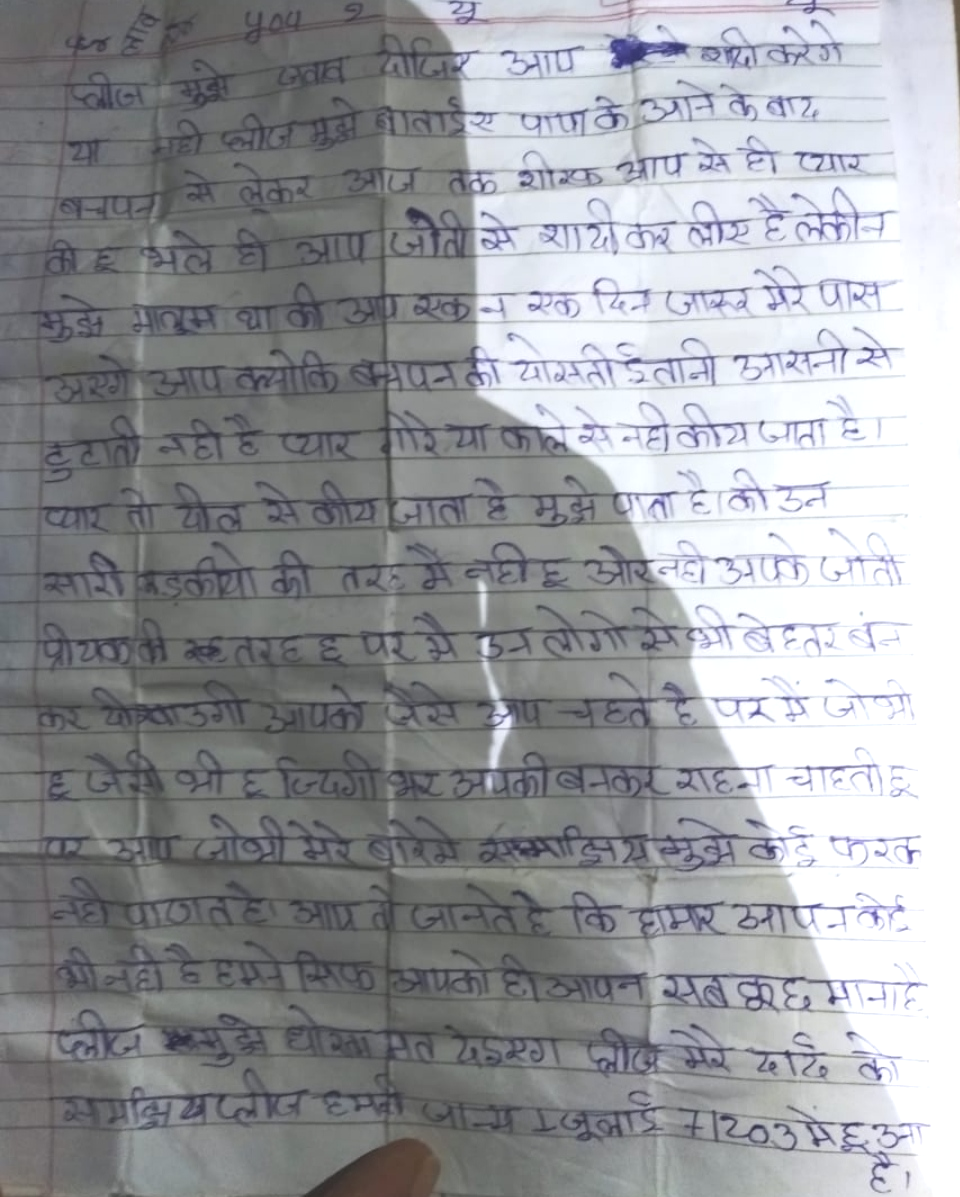 you यू
प्लीज मुझे जवाब दीजिए आप शादी करेगे
या नही प्लीज मुझे बाताईए पापा के आने के बाद
बचपन से लेकर आज तक शीरफ आप से ही प्यार
की हू भले ही आप जोती से शादी कर लीए है लेकीन
मुझे मालूम था की आप एक न एक दिन जारूर मेरे पास
अएगे आप क्योकि बचपन की दोसती ईतानी आसनी से
टुटाती नही है प्यार गोरे या काले से नही कीय जाता है।
प्यार तो दील से कीय जाता है मुझे पाता है की उन
सारी लड़कीयो की तरह मै नही हू और नही अपके जोती
प्रीयंका की तरह हू पर मै उन लोगो से भी बेहतर बन
कर दीखाउगी आपको जैसे आप चहते है पर मैं जो भी
हू जैसी भी हू ज्दिगी भर अपकी बनकर राहना चाहती हू
पर आप जोभी मेरे बारेमे समाझिय मुझे कोई फरक
नही पाड़ात है। आप तो जानते है कि हामार आपन कोई
भी नही है हमने सिफ आपको ही आपन सब कुछ माना है
प्लीज मुझे धोखा मत देइएगा प्लीज मेरे दार्द को
समाझिय प्लीज हमरी जान्म 1 जूलाई 7/203 में हूआ
है।